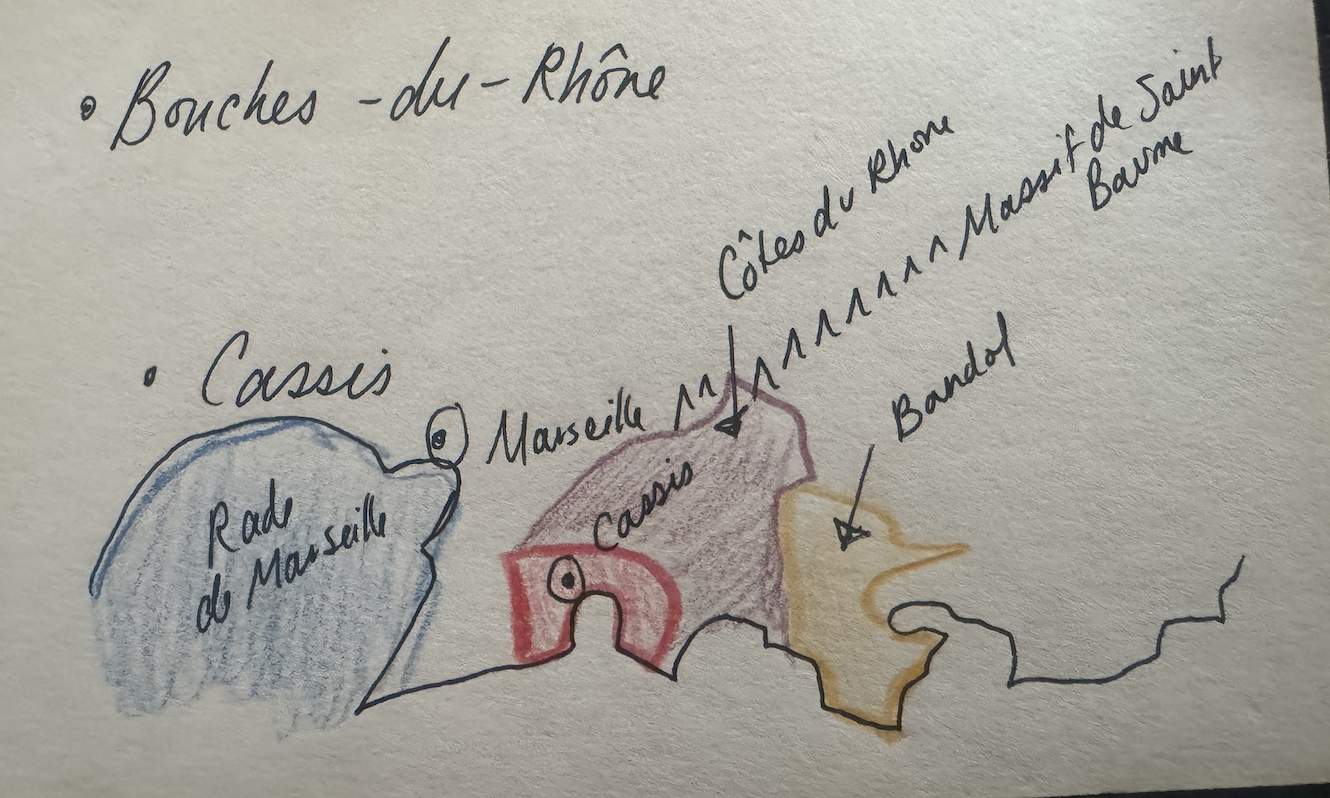 • Bouches-du-Rhône
Côtes du Rhone
Massif de Saint
Baume
• Cassis
Marseille
Bandol
Rade
de Marseille
Cassis